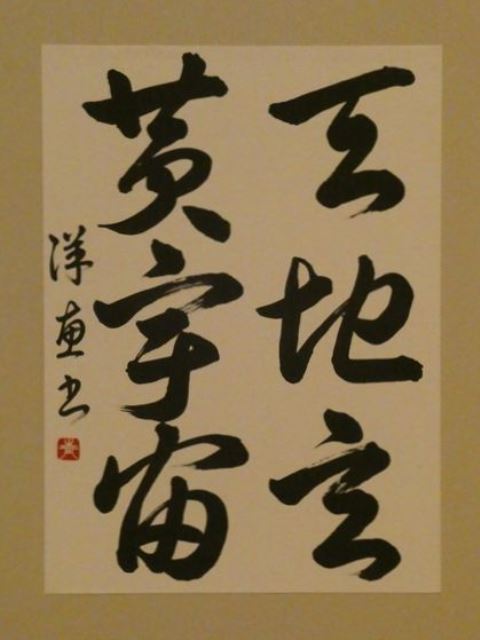 天地玄
黄宇宙
洋恵书